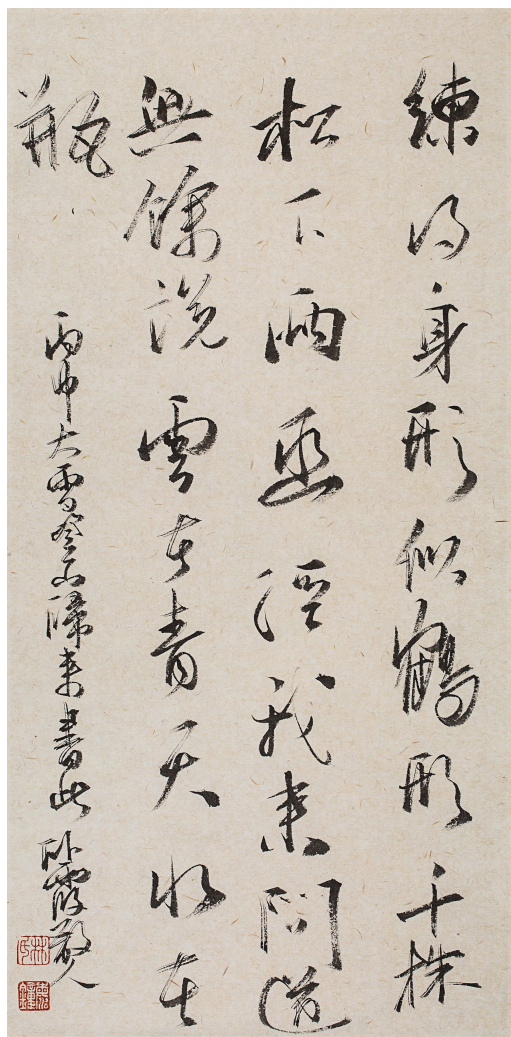 練得身形似鶴形千株
松下兩函經我來問道
無餘說雲在青天水在
瓶
丙申大雪登山歸來書此 臥霞散人
林氏